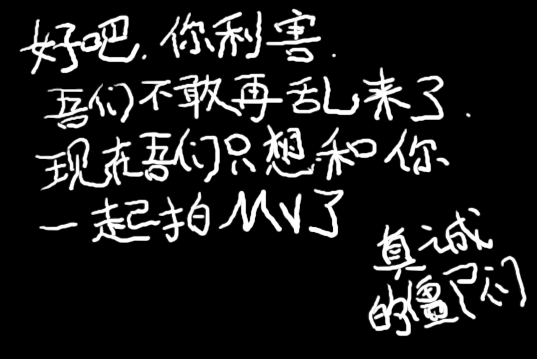 好吧.你利害.
吾们不敢再乱来了.
现在吾们只想和你
一起拍MV了
真诚
的僵尸们